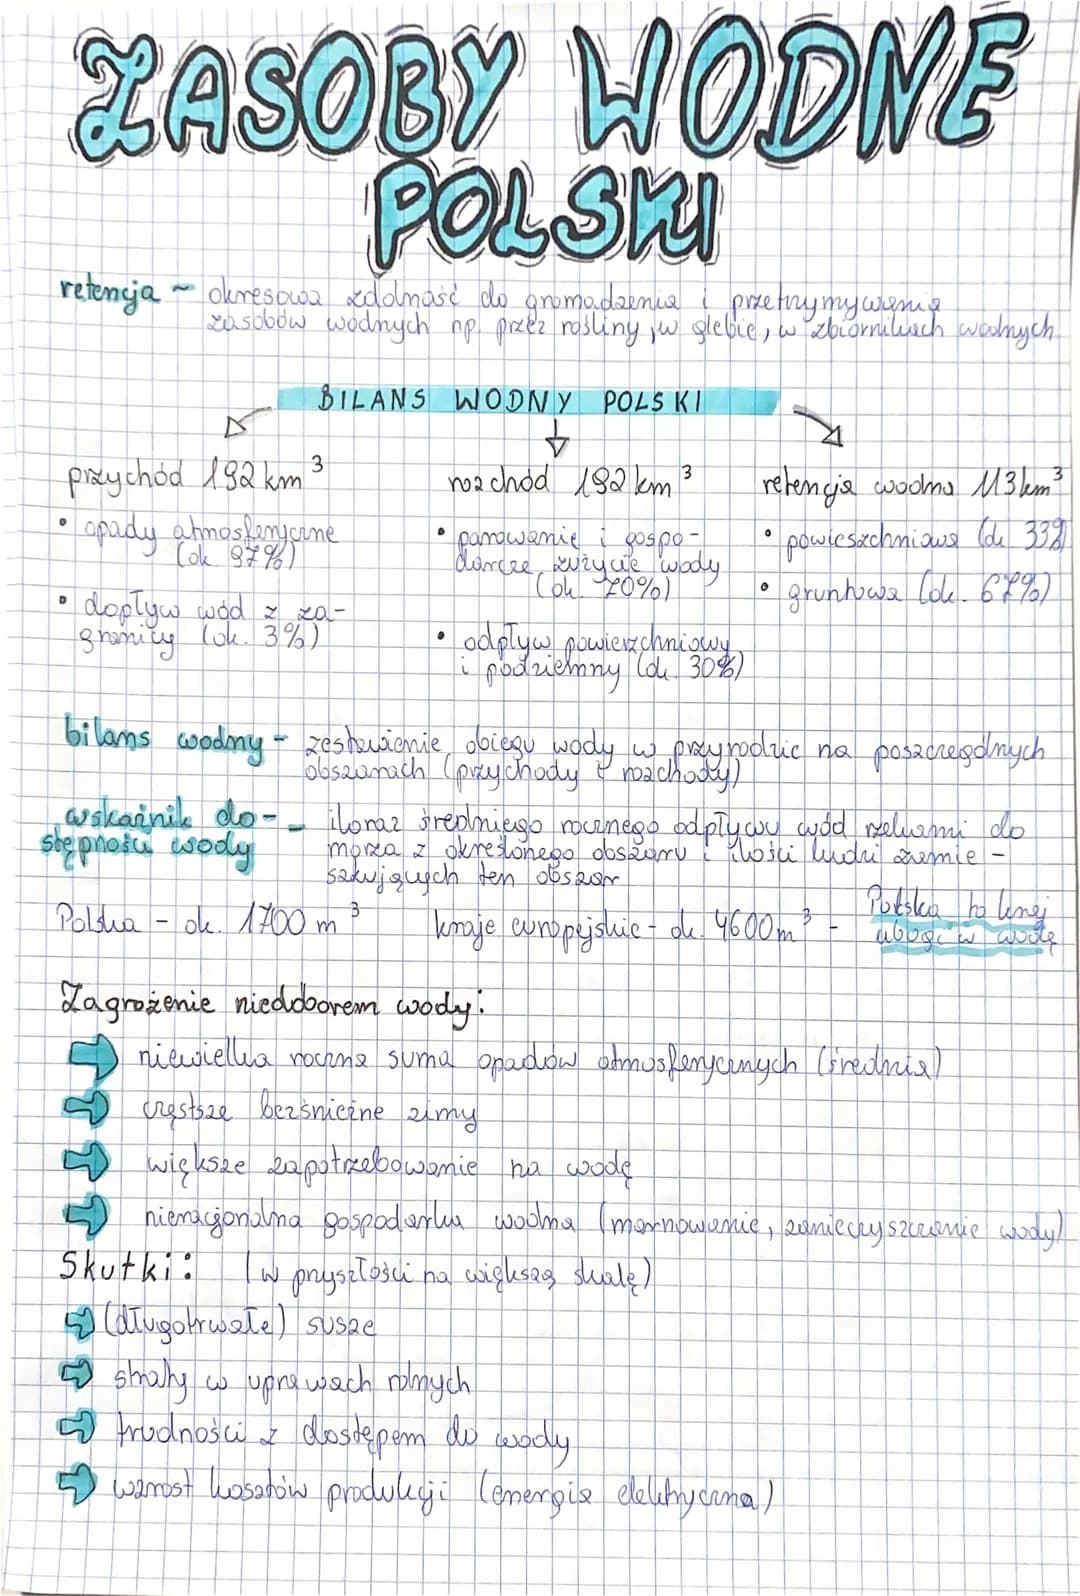 ZASOBY WODNE
POLSKI
retencja ~ okresowa zdolność do gromadzenia i przetrzymywania
zasobów wodnych np. przez rośliny, w glebie, w zbiornikach wodnych
BILANS WODNY POLSKI
przychód 192 km³
• opady atmosferyczne
(ok 97%)
• dopływ wód z za-
granicy (ok. 3%)
rozchód 192 km³
• parowanie i gospo-
darcze zużycie wody
(ok. 70%)
• odpływ powierzchniowy
i podziemny (ok. 30%)
retencja wodna 113 km³
• powierzchniowa (ok 33%)
• gruntowa (ok. 67%)
bilans wodny - zestawienie obiegu wody w przyrodzie na poszczególnych
obszarach (przychody i rozchody)
wskaźnik do-
stępności wody
- iloraz średniego rocznego odpływu wód rzekami do
morza z określonego obszaru i ilości ludzi zamie-
szkujących ten obszar
Polska - ok. 1700 m³ kraje europejskie - ok. 4600 m³ -
Polska to kraj
ubogi w wodę
Zagrożenie niedoborem wody:
⇒ niewielka roczna suma opadów atmosferycznych (średnia)
⇒ częstsze bezśnieżne zimy
⇒ większe zapotrzebowanie na wodę
⇒ nieracjonalna gospodarka wodna (marnowanie, zanieczyszczenie wody)
Skutki: (w przyszłości na większą skalę)
⇒ (długotrwałe) susze
⇒ straty w uprawach rolnych
⇒ trudności z dostępem do wody
⇒ wzrost kosztów produkcji (energia elektryczna)